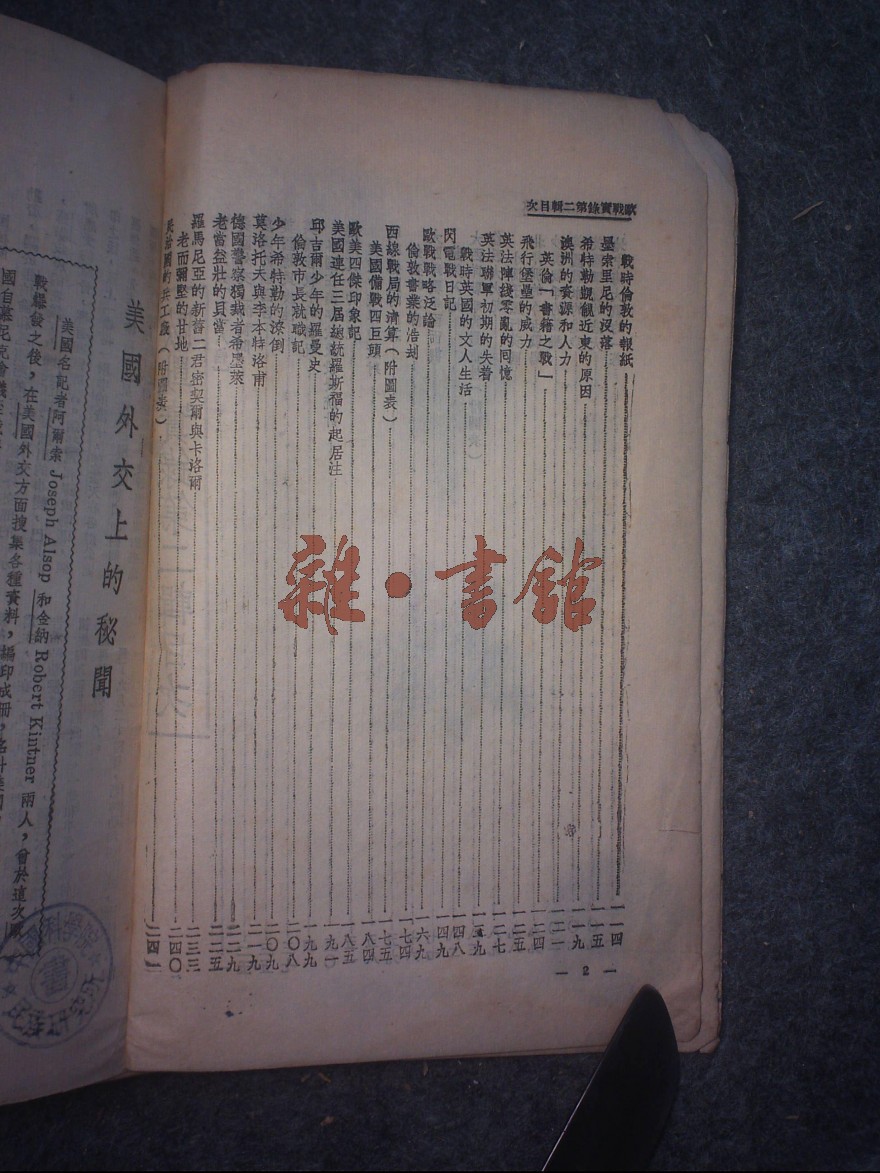 歐戰實錄第二輯目次
戰時倫敦的報紙 一一四
墨索里尼的沒落 一一五
希特勒覬覦近東的原因 一一九
澳洲的資源和人力 一二一
英倫「書籍之戰」 一二四
飛行堡壘的威力 一二五
英法陣綫零亂的回憶 一二七
英法聯軍初期的失着 一三九
戰時英國的文人生活 一四八
閃電戰日記 一四九
歐戰戰略泛論 一六九
倫敦書業的浩刦 一七四
西線戰局的清算(附圖表) 一七五
美國備戰四巨頭 一八四
歐美四傑印象記 一八五
美國連任三屆總統羅斯福的起居注 一九一
邱吉爾少年的羅曼史 一九九
倫敦市長就職記 二〇八
少年希特勒的潦倒 二〇九
莫洛托夫與李本特洛甫 二一九
德國警察獨裁者希墨萊 二二九
老當益壯的貝當 二二五
羅馬尼亞的新舊二君密契爾與卡洛爾 二三三
老而彌堅的甘地 二四〇
民治國的兵工廠(附圖表) 二四一
— 2 —
美國外交上的秘聞
美國名記者阿爾索 Joseph Alsop 和金納 Robert Kintner 兩人,曾於這次
戰爆發之後,在美國外交方面搜集各種資料,編印成冊,
雜·書館